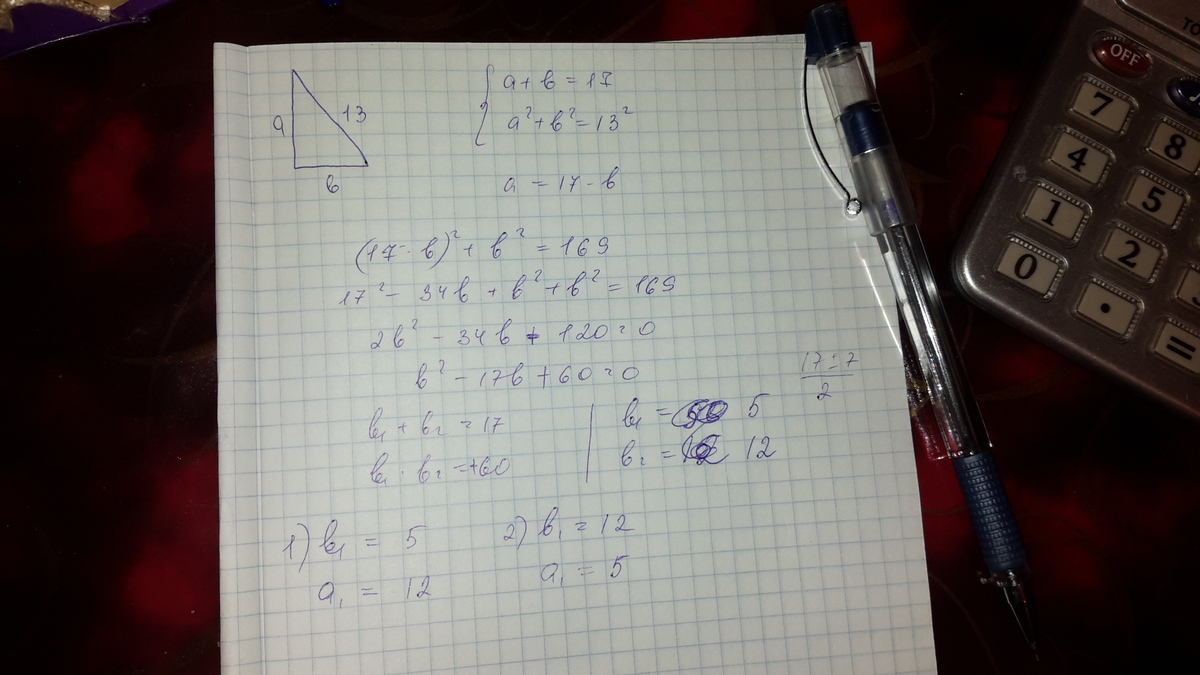 a
13
в
a + в = 17
a² + в² = 13²
a = 17 - в
(17 - в)² + в² = 169
17² - 34в + в² + в² = 169
2в² - 34в + 120 = 0
в² - 17в + 60 = 0
17 ± 7
2
в₁ + в₂ = 17
в₁ · в₂ = +60
в₁ = 5
в₂ = 12
1) в₁ = 5
a₁ = 12
2) в₁ = 12
a₁ = 5
OFF
7
8
4
5
1
2
0
.
=